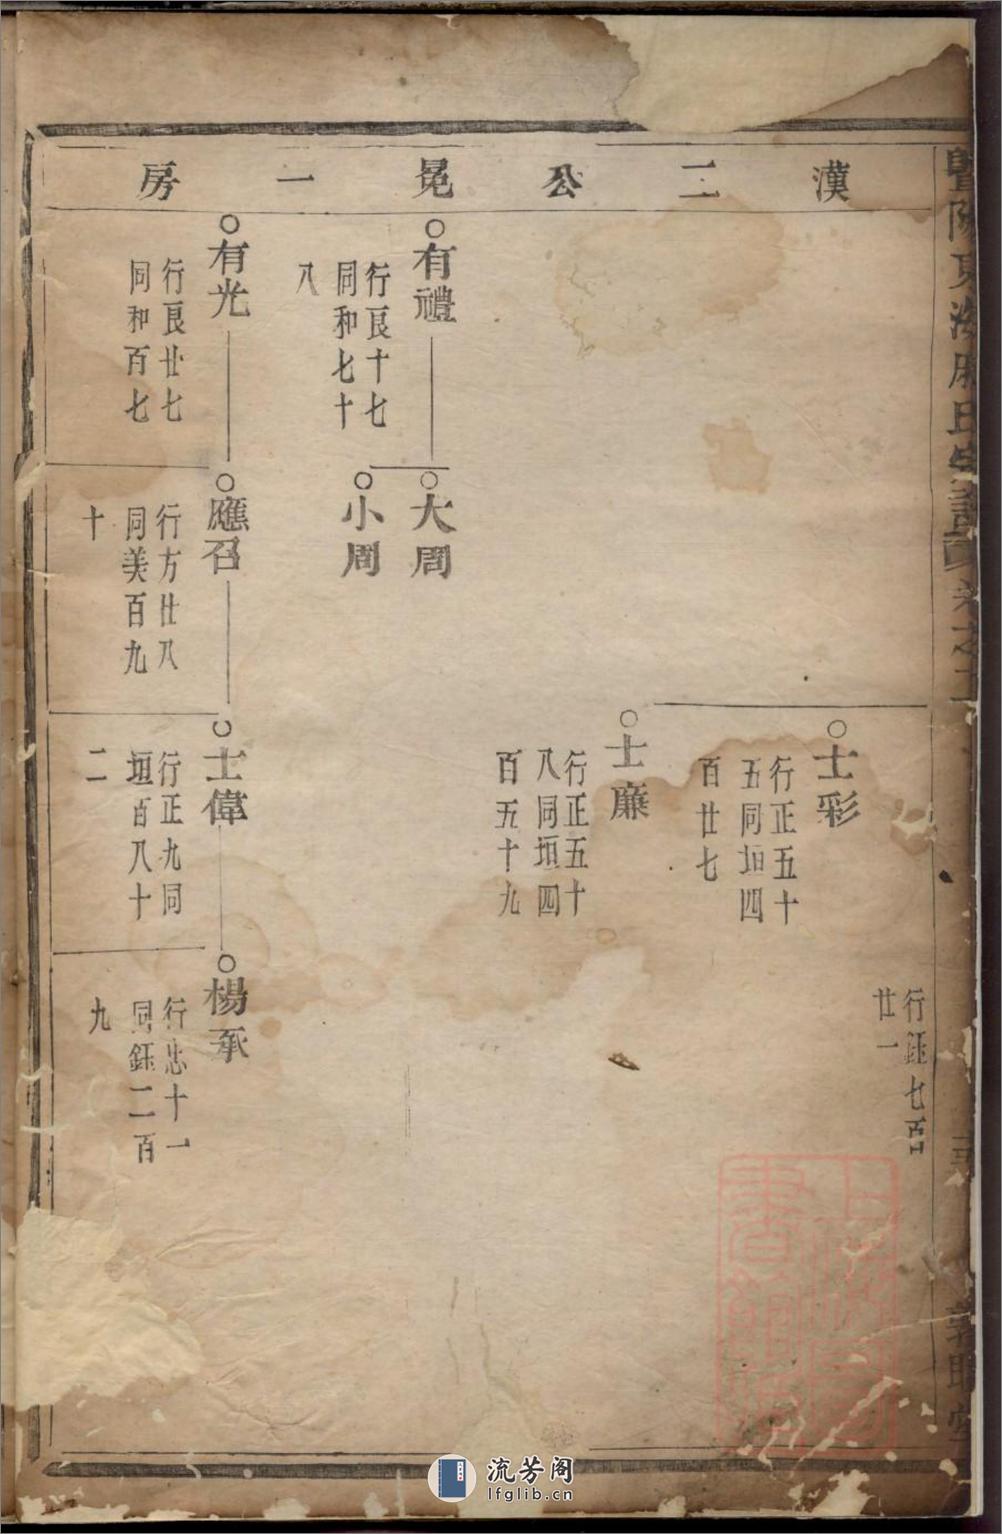 漢二公冕一房
行鈺七百
廿一
士彩
行正五十
五同垣四
百廿七
士廉
行正五十
八同垣四
百五十九
有禮
行良十七
同和七十
八
大周
小周
有光
行良廿七
同和百七
應召
行方廿八
同美百九
十
士偉
行正九同
垣百八十
二
楊承
行忠十一
同鈺二百
九
流芳阁
lfglib.cn